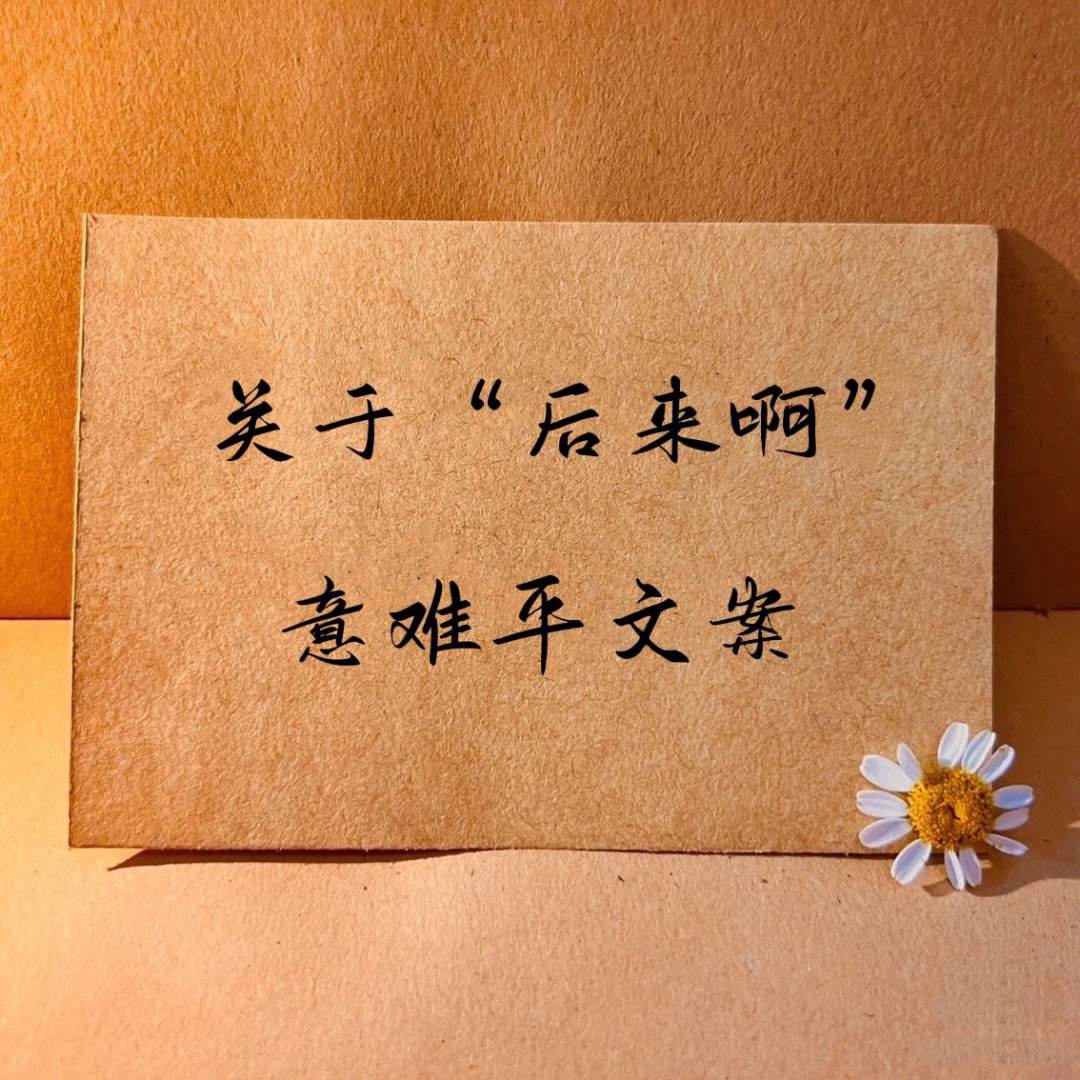 关于“后来啊”
意难平文案